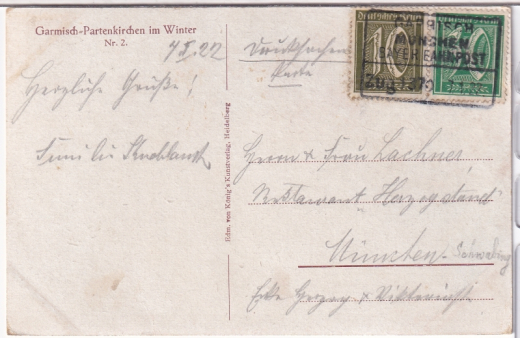 Garmisch-Partenkirchen im Winter
Nr. 2.
4 II. 22
Drucksachen
Karte
Herzliche Grüße!
Familie
Herrn & Frau Lachner,
Restaurant "Herzogstand"
München-Schwabing
Ecke Herzog & Viktoriastr
Hdm. von König's Kunstverlag, Heidelberg
Deutsches Reich
10
MÜNCHEN
BAYER. BAHNPOST
Zug
40